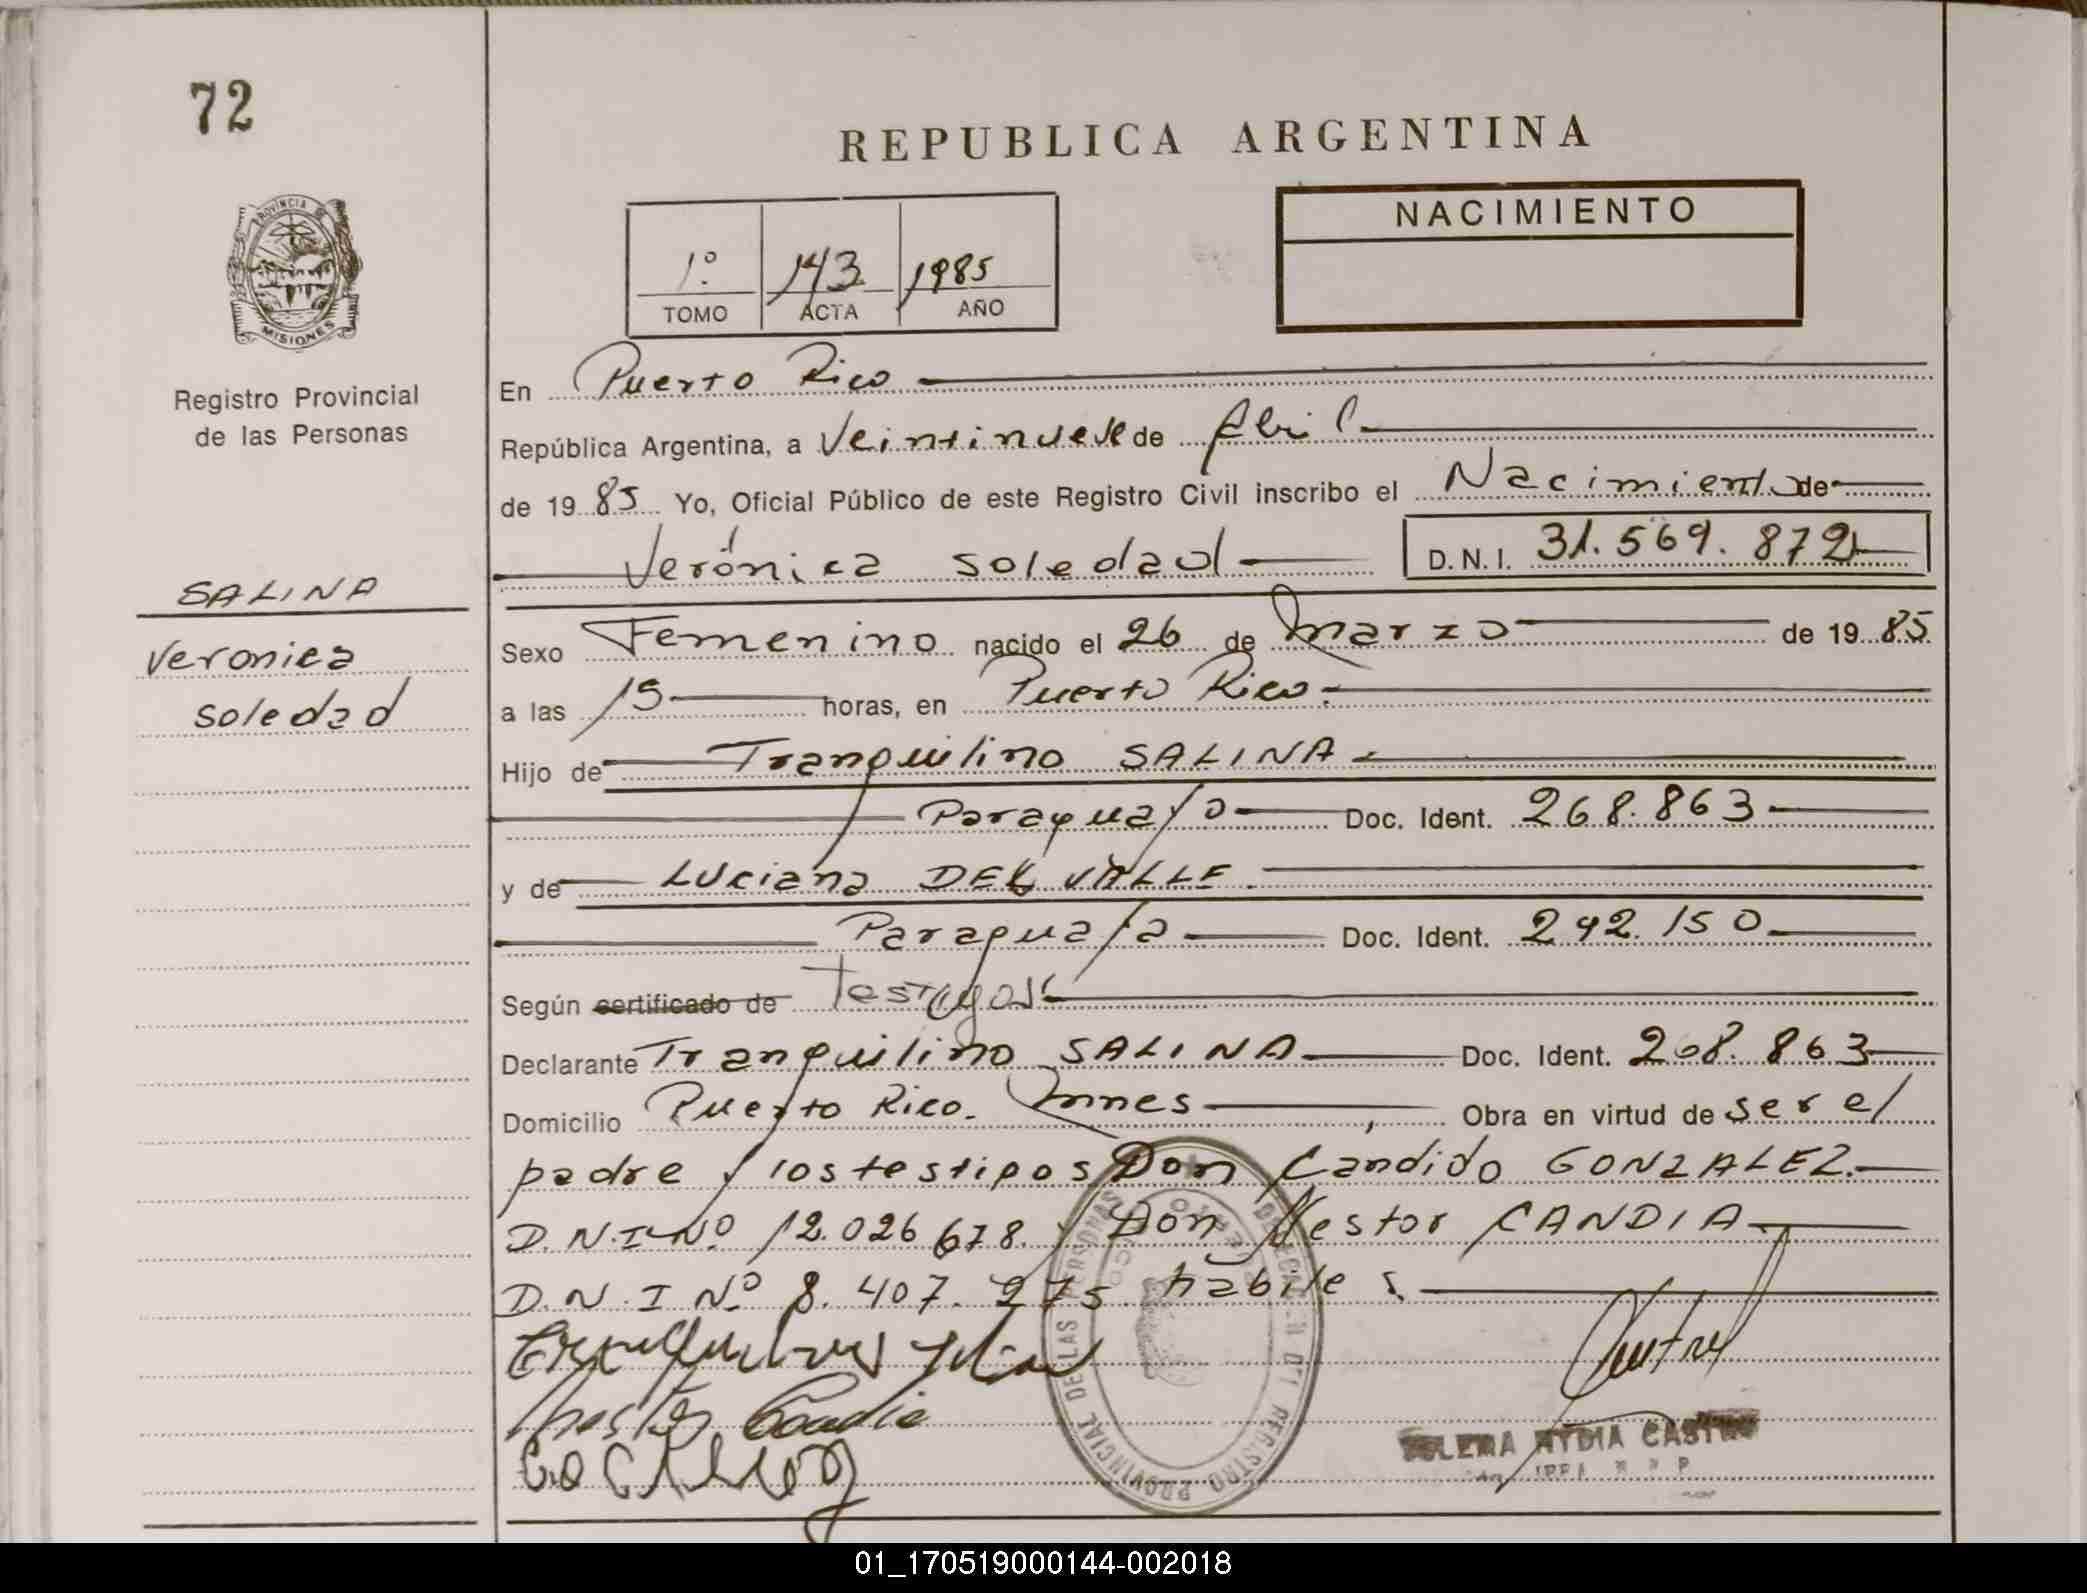 72
REPUBLICA ARGENTINA
PROVINCIA
MISIONES
NACIMIENTO
1º 143 1985
TOMO ACTA AÑO
Registro Provincial
de las Personas
En Puerto Rico
República Argentina, a Veintinueve de Abril
de 19 85 Yo, Oficial Público de este Registro Civil inscribo el Nacimiento de
Verónica Soledad D.N.I. 31.569.872
SALINA
Veronica
Soledad
Sexo Femenino nacido el 26 de Marzo de 19 85
a las 19 horas, en Puerto Rico.
Hijo de Tranquilino SALINA
Paraguayo Doc. Ident. 268.863
y de Luciana DEL VALLE
Paraguaya Doc. Ident. 242.150
Según certificado de Testigos
Declarante Tranquilino SALINA Doc. Ident. 268.863
Domicilio Puerto Rico. Mnes , Obra en virtud de ser el
padre y los testigos Don Candido GONZALEZ.
D.N.I Nº 12.026.678. y Don Nestor CANDIA
D.N.I Nº 8.407.275 habiles.
Nestor Candia
REGISTRO PROVINCIAL DE LAS PERSONAS
NYDIA CASTRO
01_170519000144-002018